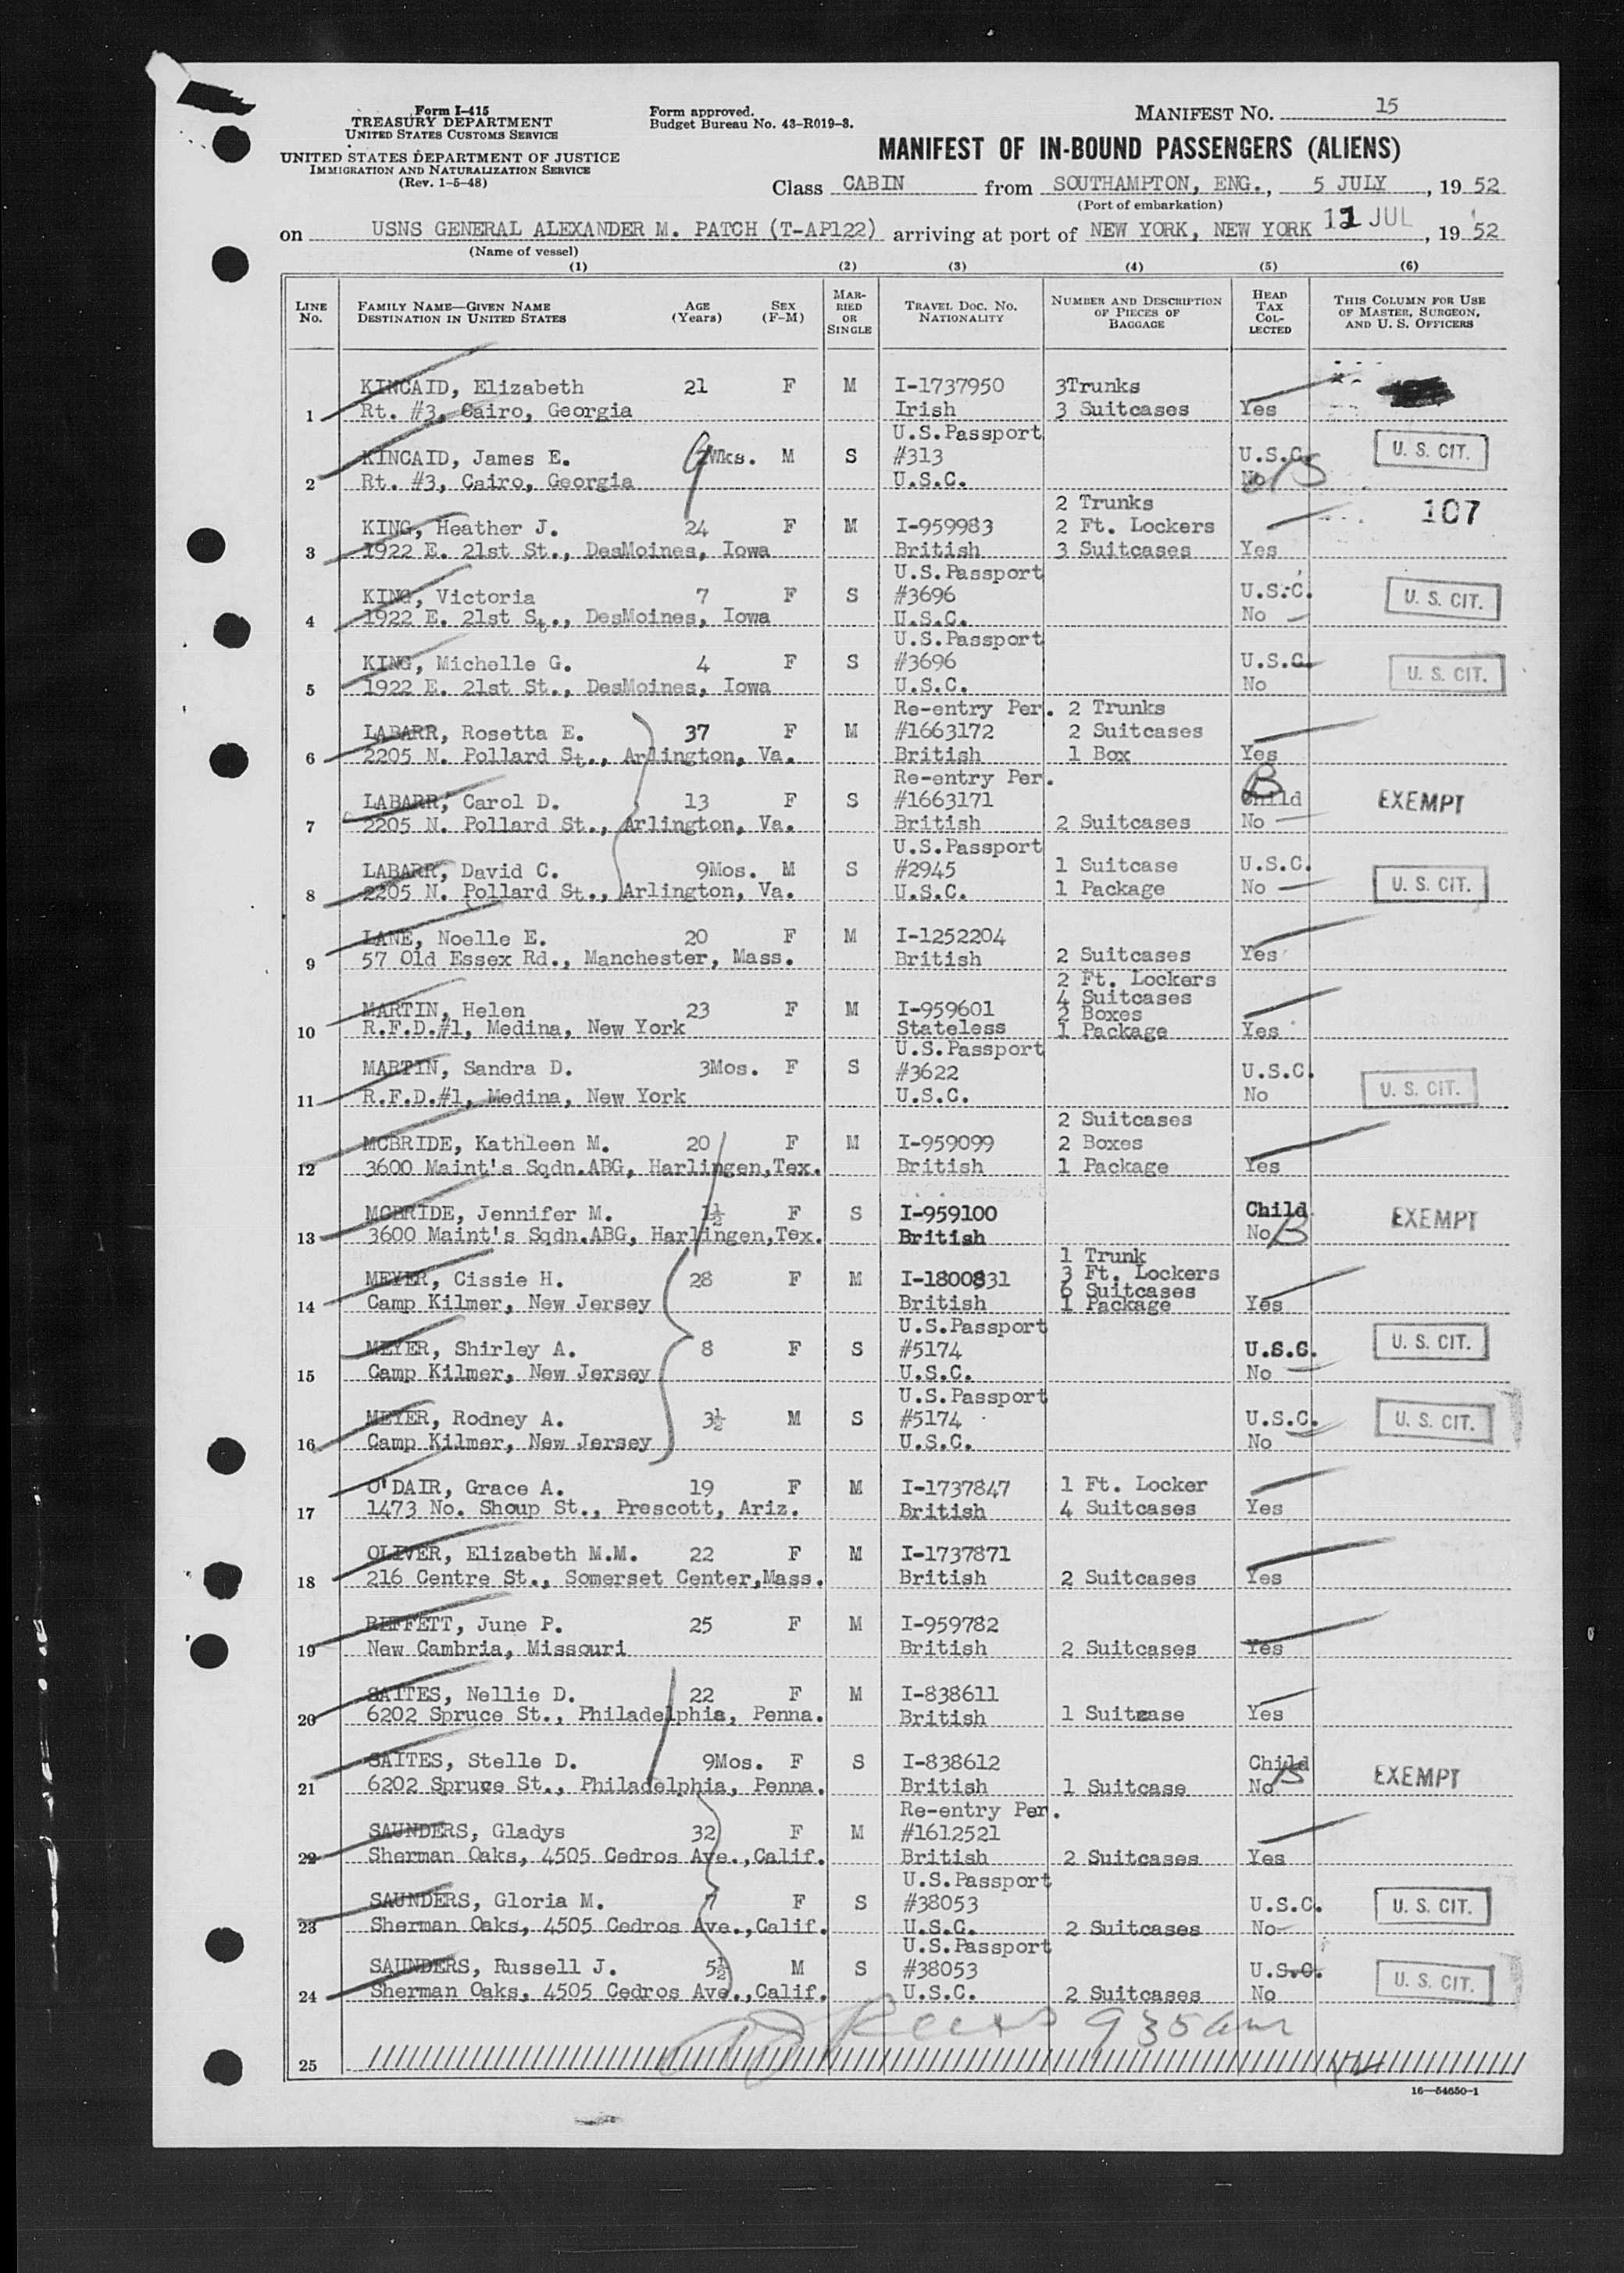 Form I-415
TREASURY DEPARTMENT
UNITED STATES CUSTOMS SERVICE
UNITED STATES DEPARTMENT OF JUSTICE
IMMIGRATION AND NATURALIZATION SERVICE
(Rev. 1-5-48)
Form approved.
Budget Bureau No. 43-R019-3.
MANIFEST NO. 15
MANIFEST OF IN-BOUND PASSENGERS (ALIENS)
Class CABIN from SOUTHAMPTON, ENG., 5 JULY, 1952
(Port of embarkation)
on USNS GENERAL ALEXANDER M. PATCH (T-AP122) arriving at port of NEW YORK, NEW YORK 11 JUL, 1952
(Name of vessel)
(1) (2) (3) (4) (5) (6)
LINE No. FAMILY NAME—GIVEN NAME DESTINATION IN UNITED STATES AGE (Years) SEX (F-M) MARRIED OR SINGLE TRAVEL DOC. NO. NATIONALITY NUMBER AND DESCRIPTION OF PIECES OF BAGGAGE HEAD TAX COLLECTED THIS COLUMN FOR USE OF MASTER, SURGEON, AND U. S. OFFICERS
KINCAID, Elizabeth 21 F M I-1737950 3Trunks
1 Rt. #3, Cairo, Georgia Irish 3 Suitcases Yes
U.S.Passport
KINCAID, James E. 9Wks. M S #313 U.S.C. U. S. CIT.
2 Rt. #3, Cairo, Georgia U.S.C. No B
2 Trunks
KING, Heather J. 24 F M I-959983 2 Ft. Lockers 107
3 1922 E. 21st St., DesMoines, Iowa British 3 Suitcases Yes
U.S.Passport
KING, Victoria 7 F S #3696 U.S.C. U. S. CIT.
4 1922 E. 21st St., DesMoines, Iowa U.S.C. No
U.S.Passport
KING, Michelle G. 4 F S #3696 U.S.C. U. S. CIT.
5 1922 E. 21st St., DesMoines, Iowa U.S.C. No
Re-entry Per. 2 Trunks
LABARR, Rosetta E. 37 F M #1663172 2 Suitcases
6 2205 N. Pollard St., Arlington, Va. British 1 Box Yes
Re-entry Per. B
LABARR, Carol D. 13 F S #1663171 Child EXEMPT
7 2205 N. Pollard St., Arlington, Va. British 2 Suitcases No
U.S.Passport
LABARR, David C. 9Mos. M S #2945 1 Suitcase U.S.C.
8 2205 N. Pollard St., Arlington, Va. U.S.C. 1 Package No U. S. CIT.
LANE, Noelle E. 20 F M I-1252204
9 57 Old Essex Rd., Manchester, Mass. British 2 Suitcases Yes
2 Ft. Lockers
4 Suitcases
MARTIN, Helen 23 F M I-959601 2 Boxes
10 R.F.D.#1, Medina, New York Stateless 1 Package Yes
U.S.Passport
MARTIN, Sandra D. 3Mos. F S #3622 U.S.C.
11 R.F.D.#1, Medina, New York U.S.C. No U. S. CIT.
2 Suitcases
MCBRIDE, Kathleen M. 20 F M I-959099 2 Boxes
12 3600 Maint's Sqdn.ABG, Harlingen,Tex. British 1 Package Yes
MCBRIDE, Jennifer M. 1½ F S I-959100 Child EXEMPT
13 3600 Maint's Sqdn.ABG, Harlingen,Tex. British No B
1 Trunk
MEYER, Cissie H. 28 F M I-1800831 3 Ft. Lockers
6 Suitcases
14 Camp Kilmer, New Jersey British 1 Package Yes
U.S.Passport
MEYER, Shirley A. 8 F S #5174 U.S.C. U. S. CIT.
15 Camp Kilmer, New Jersey U.S.C. No
U.S.Passport
MEYER, Rodney A. 3½ M S #5174 U.S.C. U. S. CIT.
16 Camp Kilmer, New Jersey U.S.C. No
O'DAIR, Grace A. 19 F M I-1737847 1 Ft. Locker
17 1473 No. Shoup St., Prescott, Ariz. British 4 Suitcases Yes
OLIVER, Elizabeth M.M. 22 F M I-1737871
18 216 Centre St., Somerset Center,Mass. British 2 Suitcases Yes
REFFETT, June P. 25 F M I-959782
19 New Cambria, Missouri British 2 Suitcases Yes
SAITES, Nellie D. 22 F M I-838611
20 6202 Spruce St., Philadelphia, Penna. British 1 Suitcase Yes
SAITES, Stelle D. 9Mos. F S I-838612 Child
21 6202 Spruce St., Philadelphia, Penna. British 1 Suitcase No B EXEMPT
Re-entry Per.
SAUNDERS, Gladys 32 F M #1612521
22 Sherman Oaks, 4505 Cedros Ave.,Calif. British 2 Suitcases Yes
U.S.Passport
SAUNDERS, Gloria M. 7 F S #38053 U.S.C. U. S. CIT.
23 Sherman Oaks, 4505 Cedros Ave.,Calif. U.S.C. 2 Suitcases No
U.S.Passport
SAUNDERS, Russell J. 5½ M S #38053 U.S.C. U. S. CIT.
24 Sherman Oaks, 4505 Cedros Ave.,Calif. U.S.C. 2 Suitcases No
935 am
25
16—54650-1